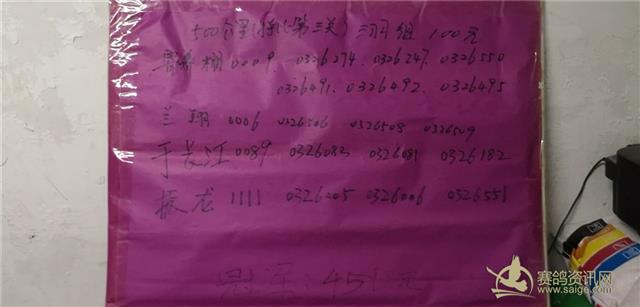 500公里(特比第三关)三羽组 100元
棚0009. 0326274. 0326247. 0326550
0326491. 0326492. 0326495
兰翔 0006 0326506 0326508 0326509
于长江0089 0326082 0326081 0326182
振龙 1111 0326005 0326006 0326551
451元
赛鸽资讯网
www.saige.com